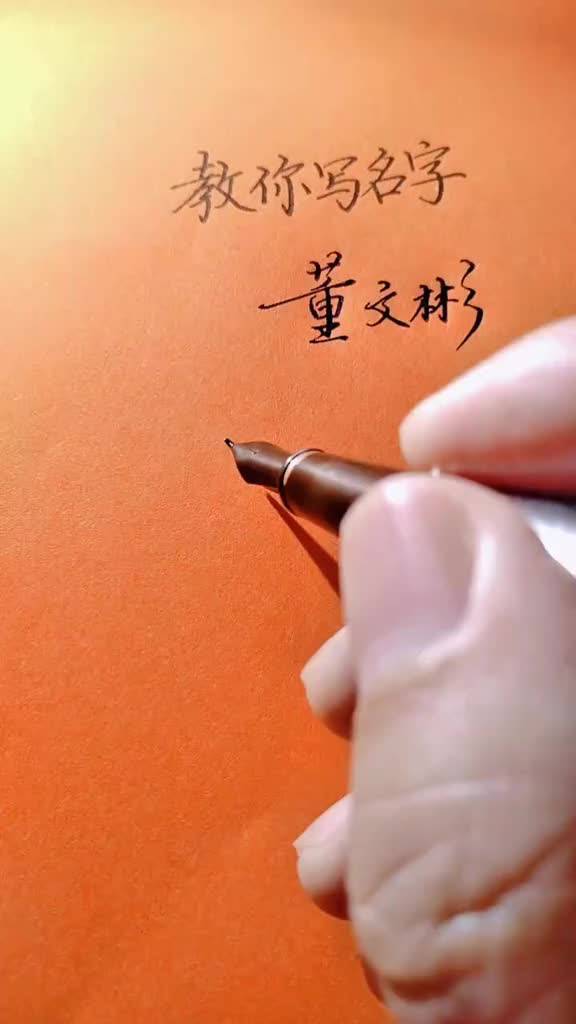 教你写名字
董文彬